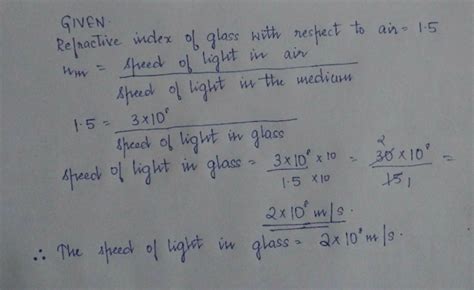 GIVEN.
Refractive index of glass with respect to air = 1.5
nm = speed of light in air / speed of light in the medium
1.5 = 3×10⁸ / speed of light in glass
speed of light in glass = 3×10⁸ × 10 / 1.5 × 10 = 2 30×10⁸ / 15 1 =
2×10⁸ m/s.
∴ The speed of light in glass = 2×10⁸ m/s.